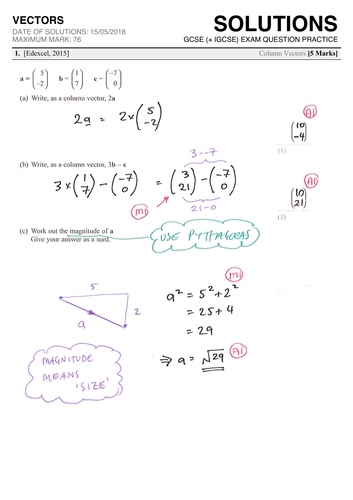 VECTORS
DATE OF SOLUTIONS: 15/05/2018
MAXIMUM MARK: 76
SOLUTIONS
GCSE (+ IGCSE) EXAM QUESTION PRACTICE
1. [Edexcel, 2015]
Column Vectors [5 Marks]
a = (5 -2) b = (1 7) c = (-7 0)
(a) Write, as a column vector, 2a
2a = 2×(5 -2)
A1
(10 -4)
(1)
(b) Write, as a column vector, 3b – c
3--7
3×(1 7) - (-7 0) = (3 21) - (-7 0)
21-0
M1
A1
(10 21)
(2)
(c) Work out the magnitude of a
Give your answer as a surd.
USE PYTHAGORAS
M1
5
2
a
a² = 5² + 2²
= 25 + 4
= 29
⇒ a = √29
A1
MAGNITUDE
MEANS
'SIZE'